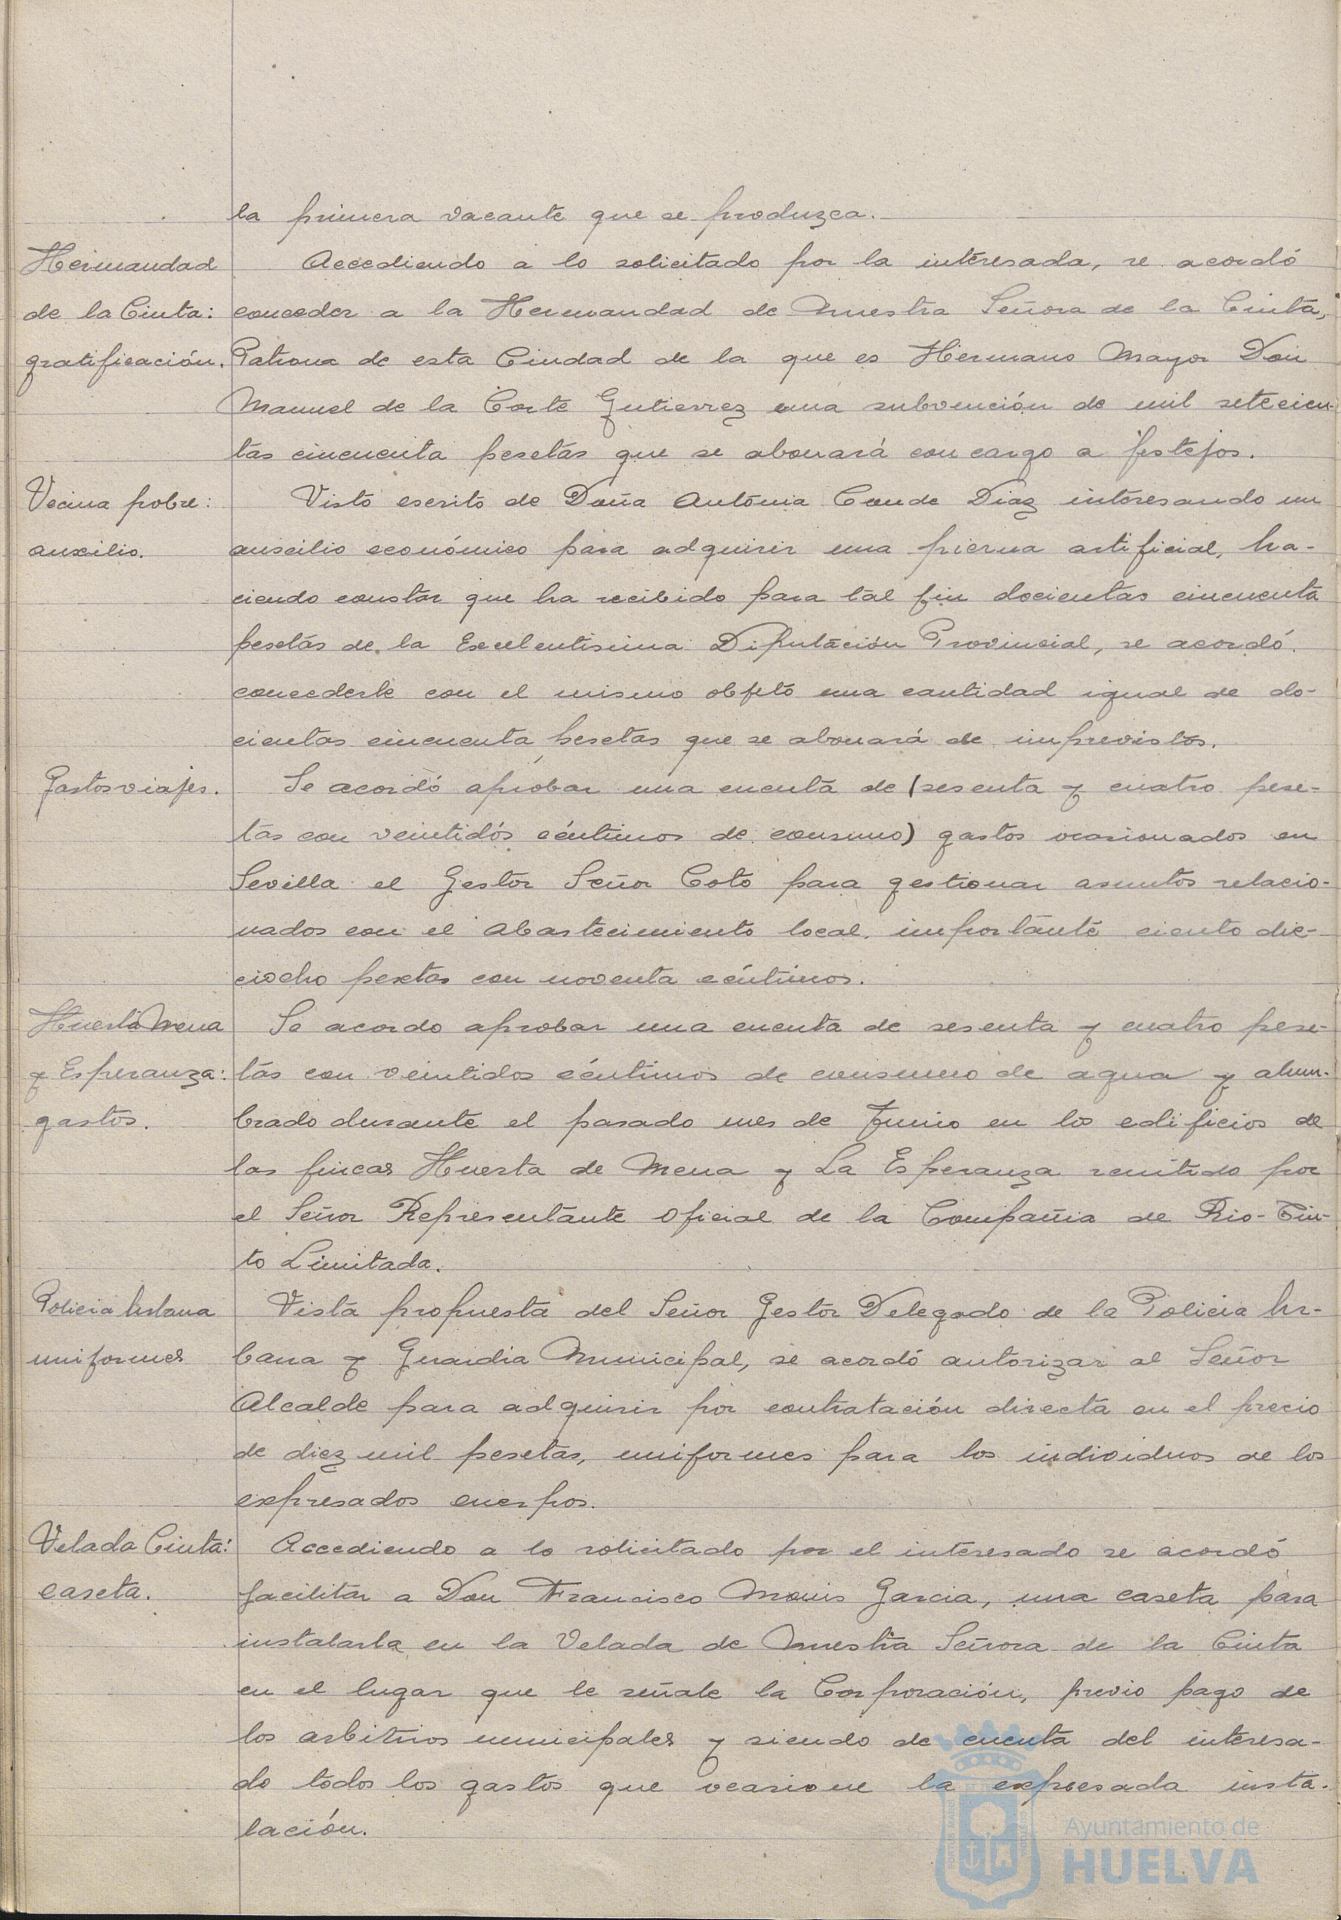 la primera vacante que se produzca.
Hermandad
de la Cinta:
gratificación.
Accediendo a lo solicitado por la interesada, se acordó
conceder a la Hermandad de Nuestra Señora de la Cinta,
Patrona de esta Ciudad de la que es Hermano Mayor Don
Manuel de la Corte Gutierrez una subvención de mil setecien-
tas cincuenta pesetas que se abonará con cargo a festejos.
Vecina pobre:
auxilio.
Visto escrito de Doña Antonia Conde Diaz interesando un
auxilio económico para adquirir una pierna artificial, ha-
ciendo constar que ha recibido para tal fin docientas cincuenta
pesetas de la Excelentisima Diputación Provincial, se acordó
concederle con el mismo objeto una cantidad igual de do-
cientas cincuenta pesetas que se abonará de imprevistos.
Gastos viajes.
Se acordó aprobar una cuenta de (sesenta y cuatro pese-
tas con veintidós céntimos de consumo) gastos ocasionados en
Sevilla el Gestor Señor Coto para gestionar asuntos relacio-
nados con el Abastecimiento local, importante ciento die-
ciocho pesetas con noventa céntimos.
Huerta Mena
y Esperanza:
gastos.
Se acordo aprobar una cuenta de sesenta y cuatro pese-
tas con veintidos céntimos de consumo de agua y alum-
brado durante el pasado mes de Junio en los edificios de
las fincas Huerta de Mena y La Esperanza remitido por
el Señor Representante Oficial de la Compañia de Rio-Tin-
to Limitada.
Policia Urbana
uniformes
Vista propuesta del Señor Gestor Delegado de la Policia Ur-
bana y Guardia Municipal, se acordó autorizar al Señor
Alcalde para adquirir por contratación directa en el precio
de diez mil pesetas, uniformes para los individuos de los
expresados cuerpos.
Velada Cinta:
caseta.
Accediendo a lo solicitado por el interesado se acordó
facilitar a Don Francisco Monis Garcia, una caseta para
instalarla en la Velada de Nuestra Señora de la Cinta
en el lugar que le señale la Corporación, previo pago de
los arbitrios municipales y siendo de cuenta del interesa-
do todos los gastos que ocasione la expresada insta-
lación.
Ayuntamiento de
HUELVA